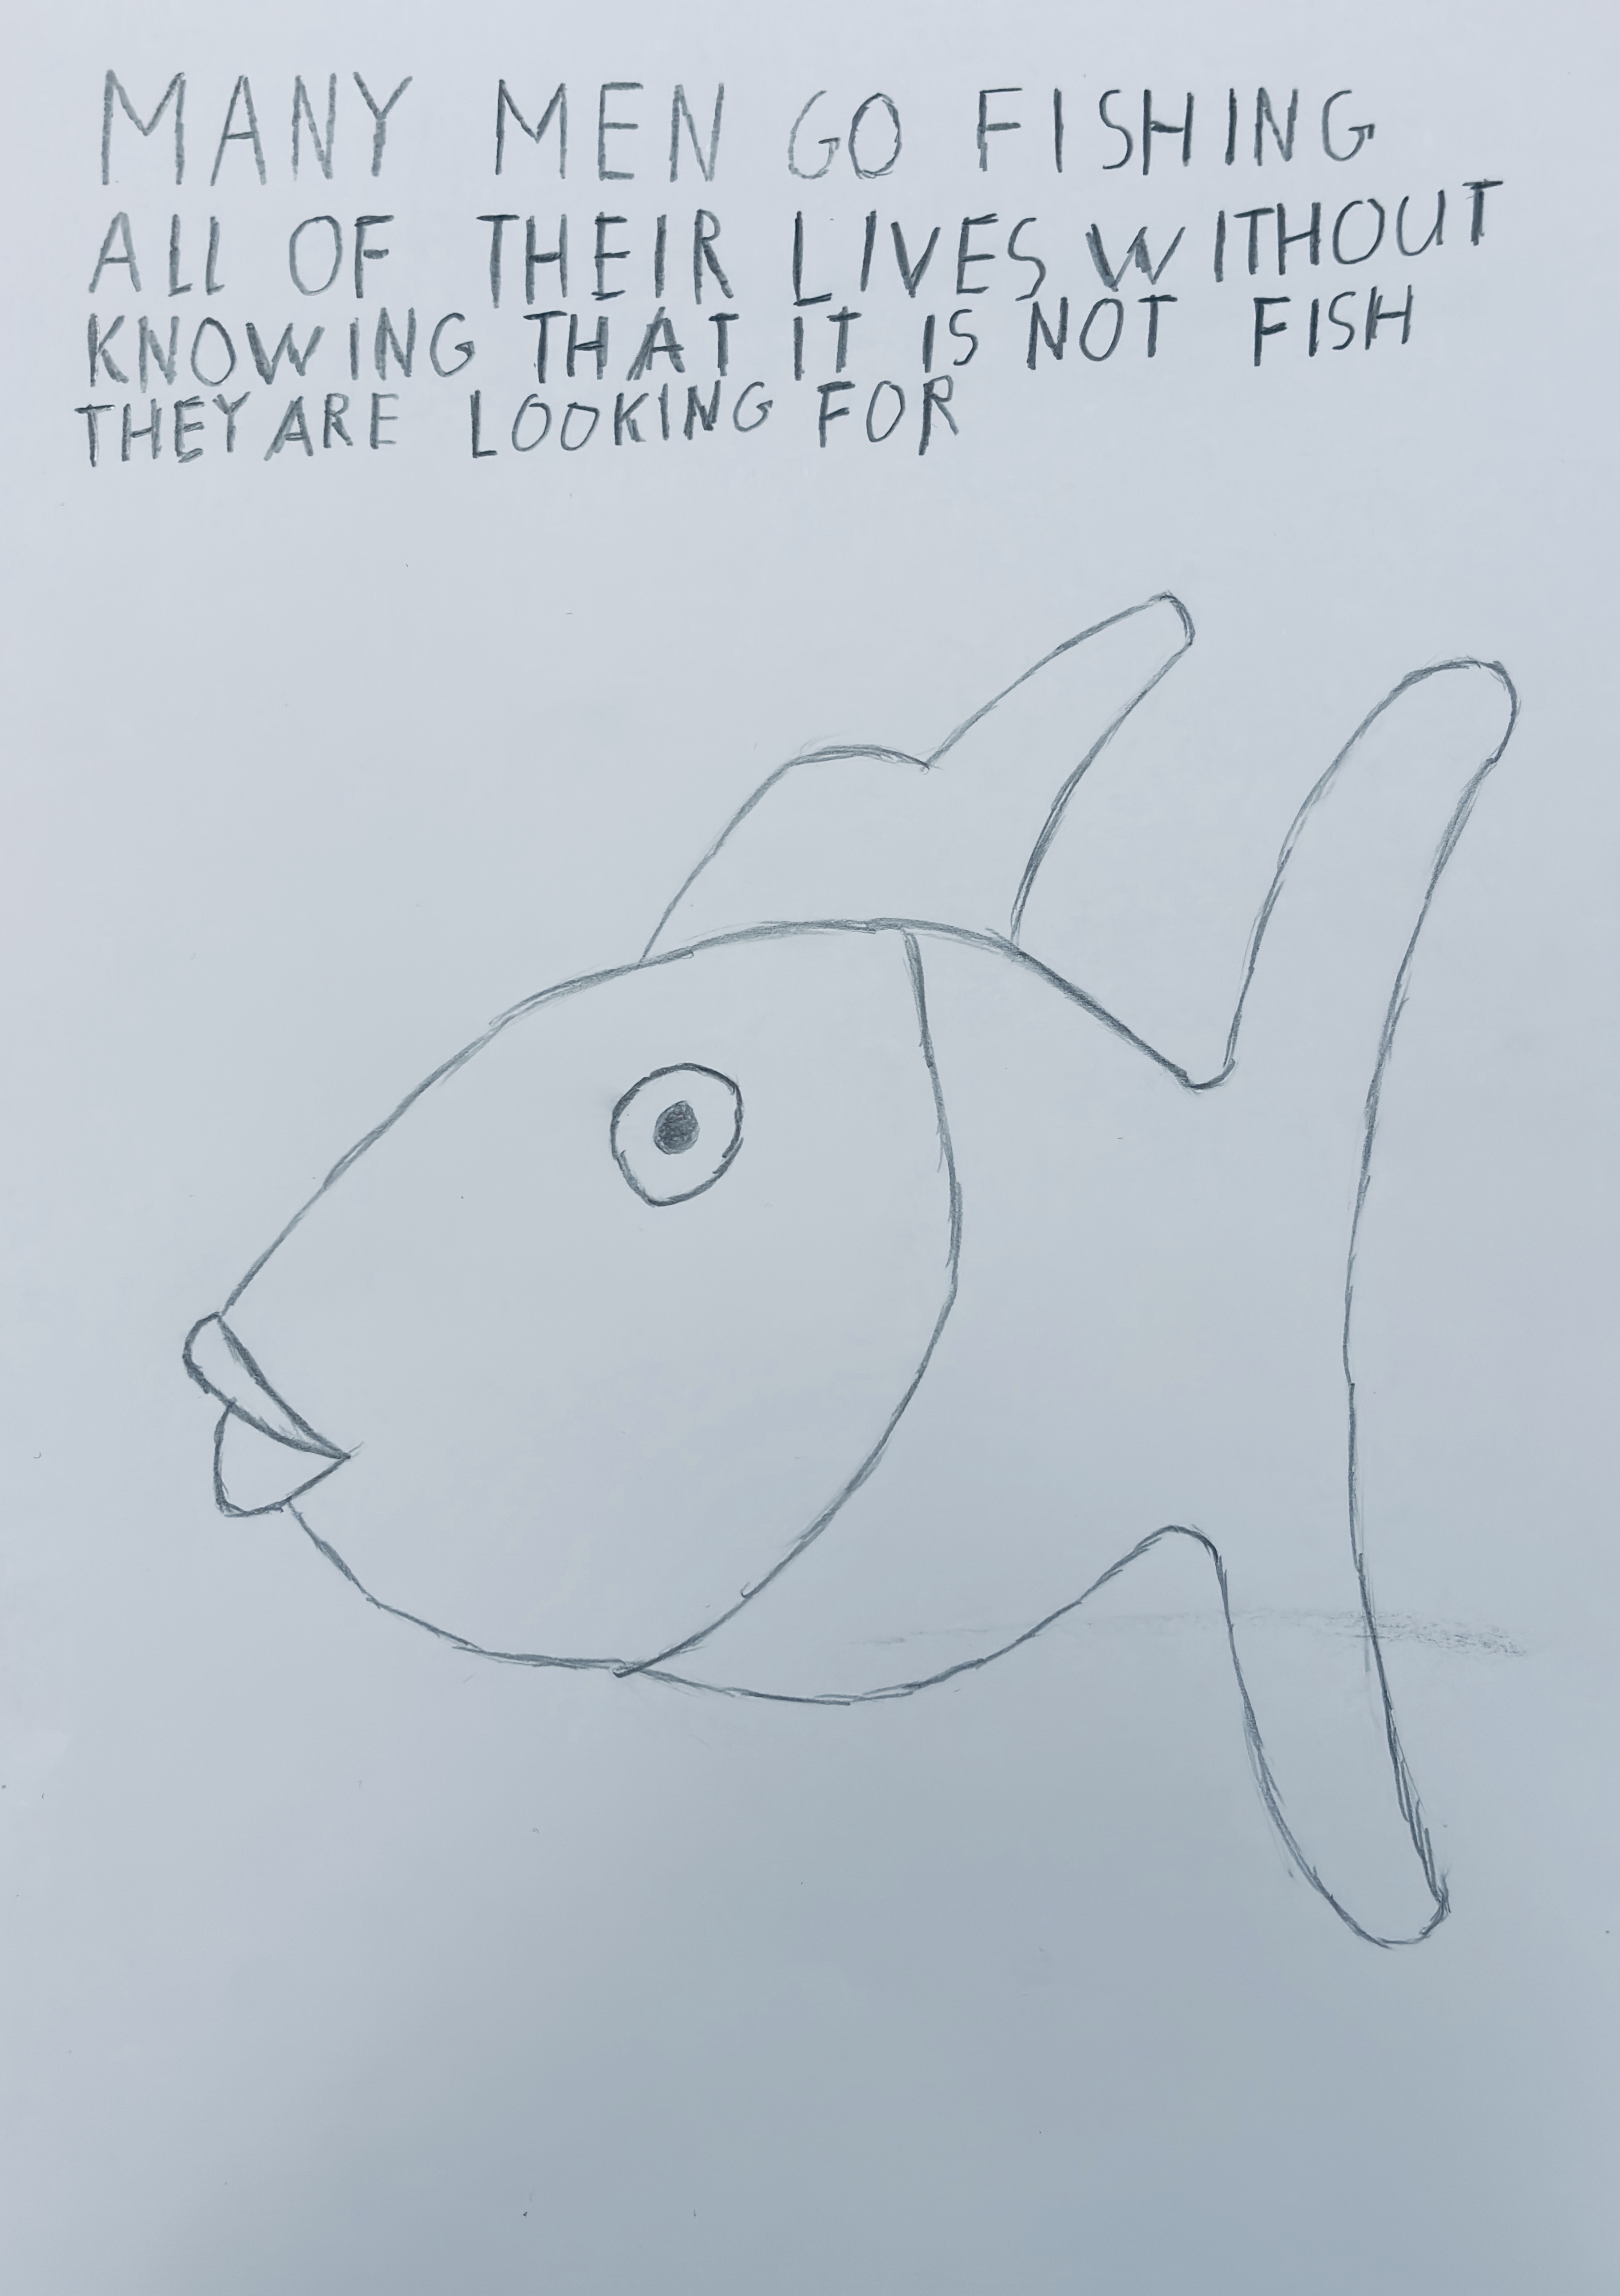 MANY MEN GO FISHING
ALL OF THEIR LIVES WITHOUT
KNOWING THAT IT IS NOT FISH
THEY ARE LOOKING FOR